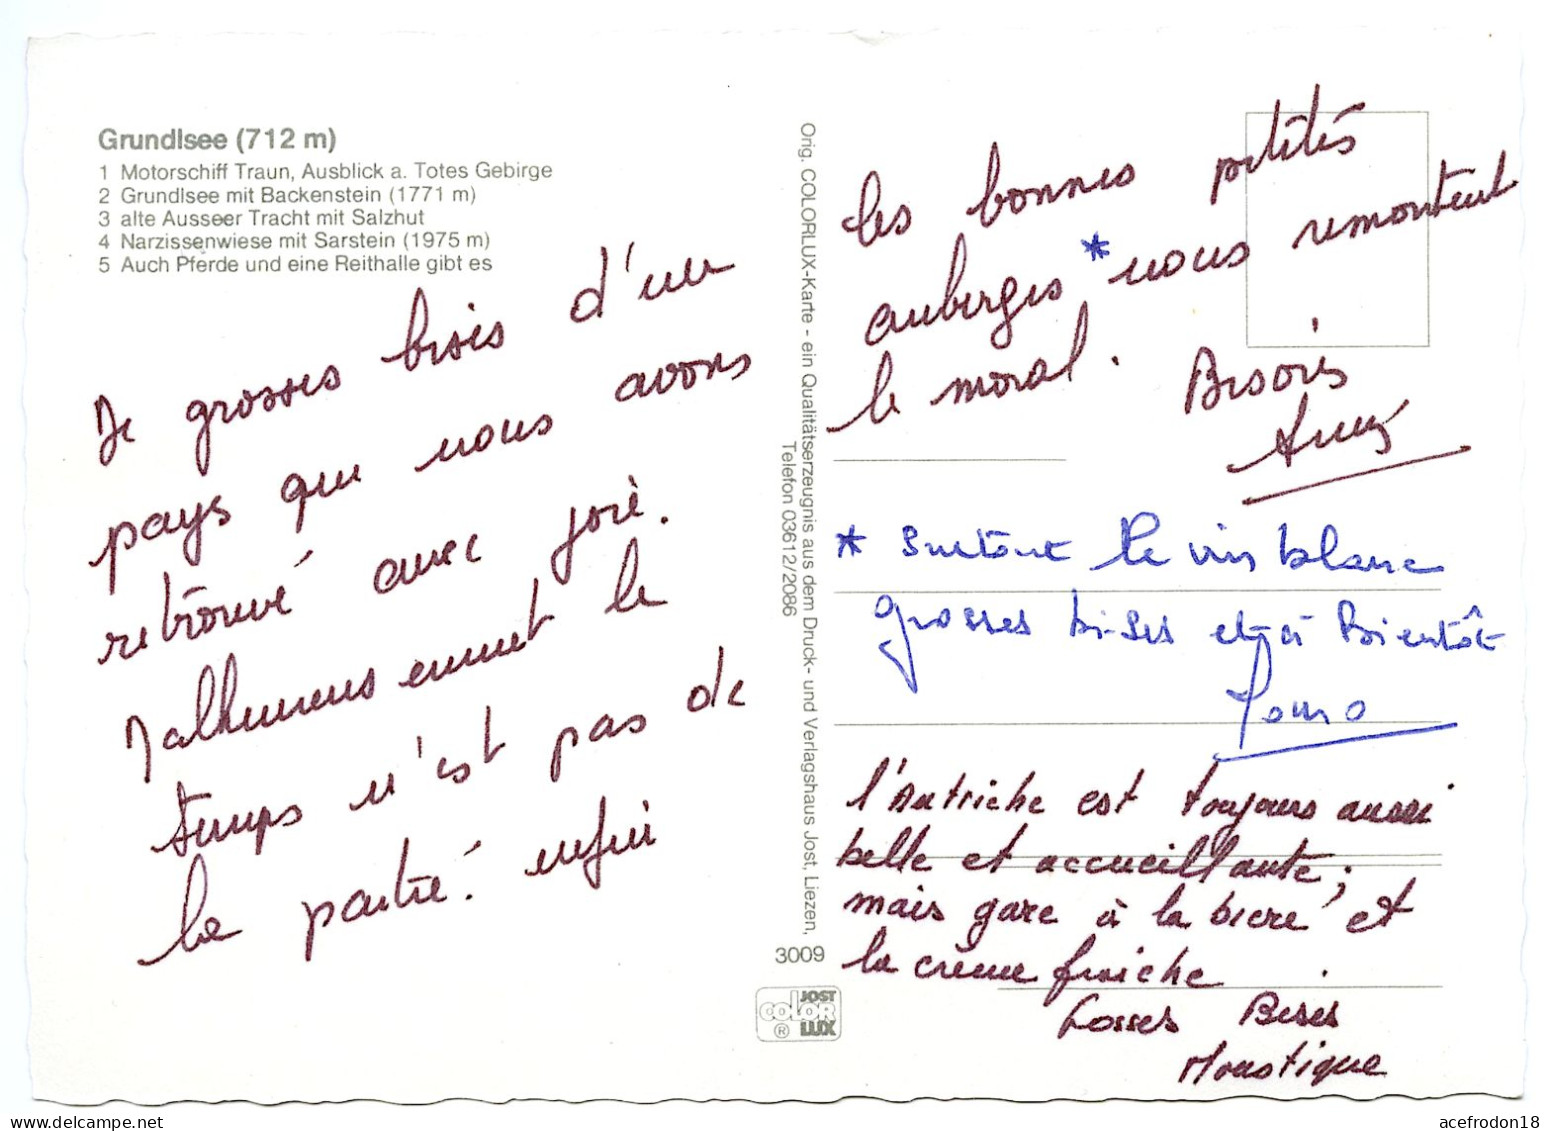 Grundlsee (712 m)
1 Motorschiff Traun, Ausblick a. Totes Gebirge
2 Grundlsee mit Backenstein (1771 m)
3 alte Ausseer Tracht mit Salzhut
4 Narzissenwiese mit Sarstein (1975 m)
5 Auch Pferde und eine Reithalle gibt es
De grosses bises d'un
pays que nous avons
retrouvé avec joie.
Malheureusement le
temps n'est pas de
la partie. enfin
Orig. COLORLUX-Karte - ein Qualitätserzeugnis aus dem Druck- und Verlagshaus Jost, Liezen,
Telefon 03612/2086
3009
JOST
COLOR
® LUX
les bonnes petites
auberges * nous remontent
le moral.
Bisous
* surtout le vin blanc
grosses bises et à Bientôt
l'Autriche est toujours aussi
belle et accueillante ;
mais gare à la bière et
la crème fraiche.
Grosses Bises
Moustique
acefrodon18